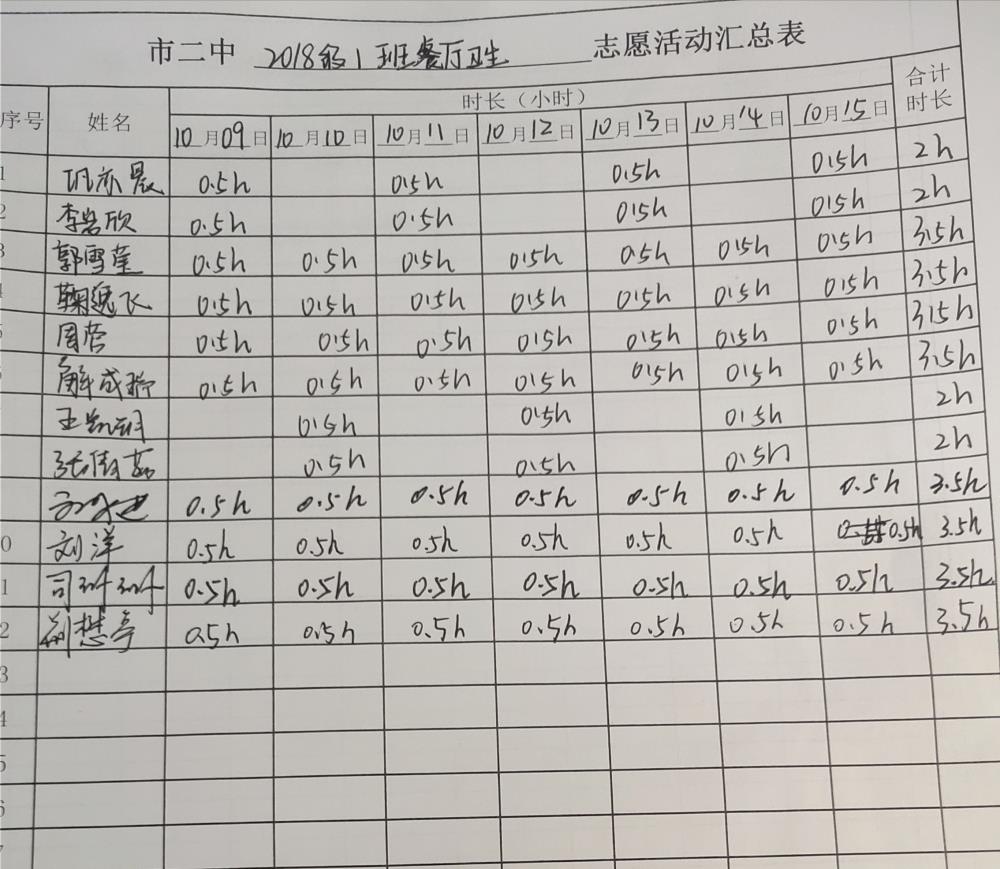 市二中 2018级1班餐厅卫生 志愿活动汇总表
序号 姓名 时长（小时） 合计时长
10月09日 10月10日 10月11日 10月12日 10月13日 10月14日 10月15日
1 巩亦晨 0.5h 0.5h 0.5h 0.5h 2h
2 李岩欣 0.5h 0.5h 0.5h 0.5h 2h
3 郭雪莹 0.5h 0.5h 0.5h 0.5h 0.5h 0.5h 0.5h 3.5h
4 鞠逸飞 0.5h 0.5h 0.5h 0.5h 0.5h 0.5h 0.5h 3.5h
5 周营 0.5h 0.5h 0.5h 0.5h 0.5h 0.5h 0.5h 3.5h
解成 0.5h 0.5h 0.5h 0.5h 0.5h 0.5h 0.5h 3.5h
王凯明 0.5h 0.5h 0.5h 2h
张倩茹 0.5h 0.5h 0.5h 2h
0.5h 0.5h 0.5h 0.5h 0.5h 0.5h 0.5h 3.5h
0 刘洋 0.5h 0.5h 0.5h 0.5h 0.5h 0.5h 0.5h 3.5h
1 司 0.5h 0.5h 0.5h 0.5h 0.5h 0.5h 0.5h 3.5h
2 荆懋亭 0.5h 0.5h 0.5h 0.5h 0.5h 0.5h 0.5h 3.5h
3
4
5
6
7